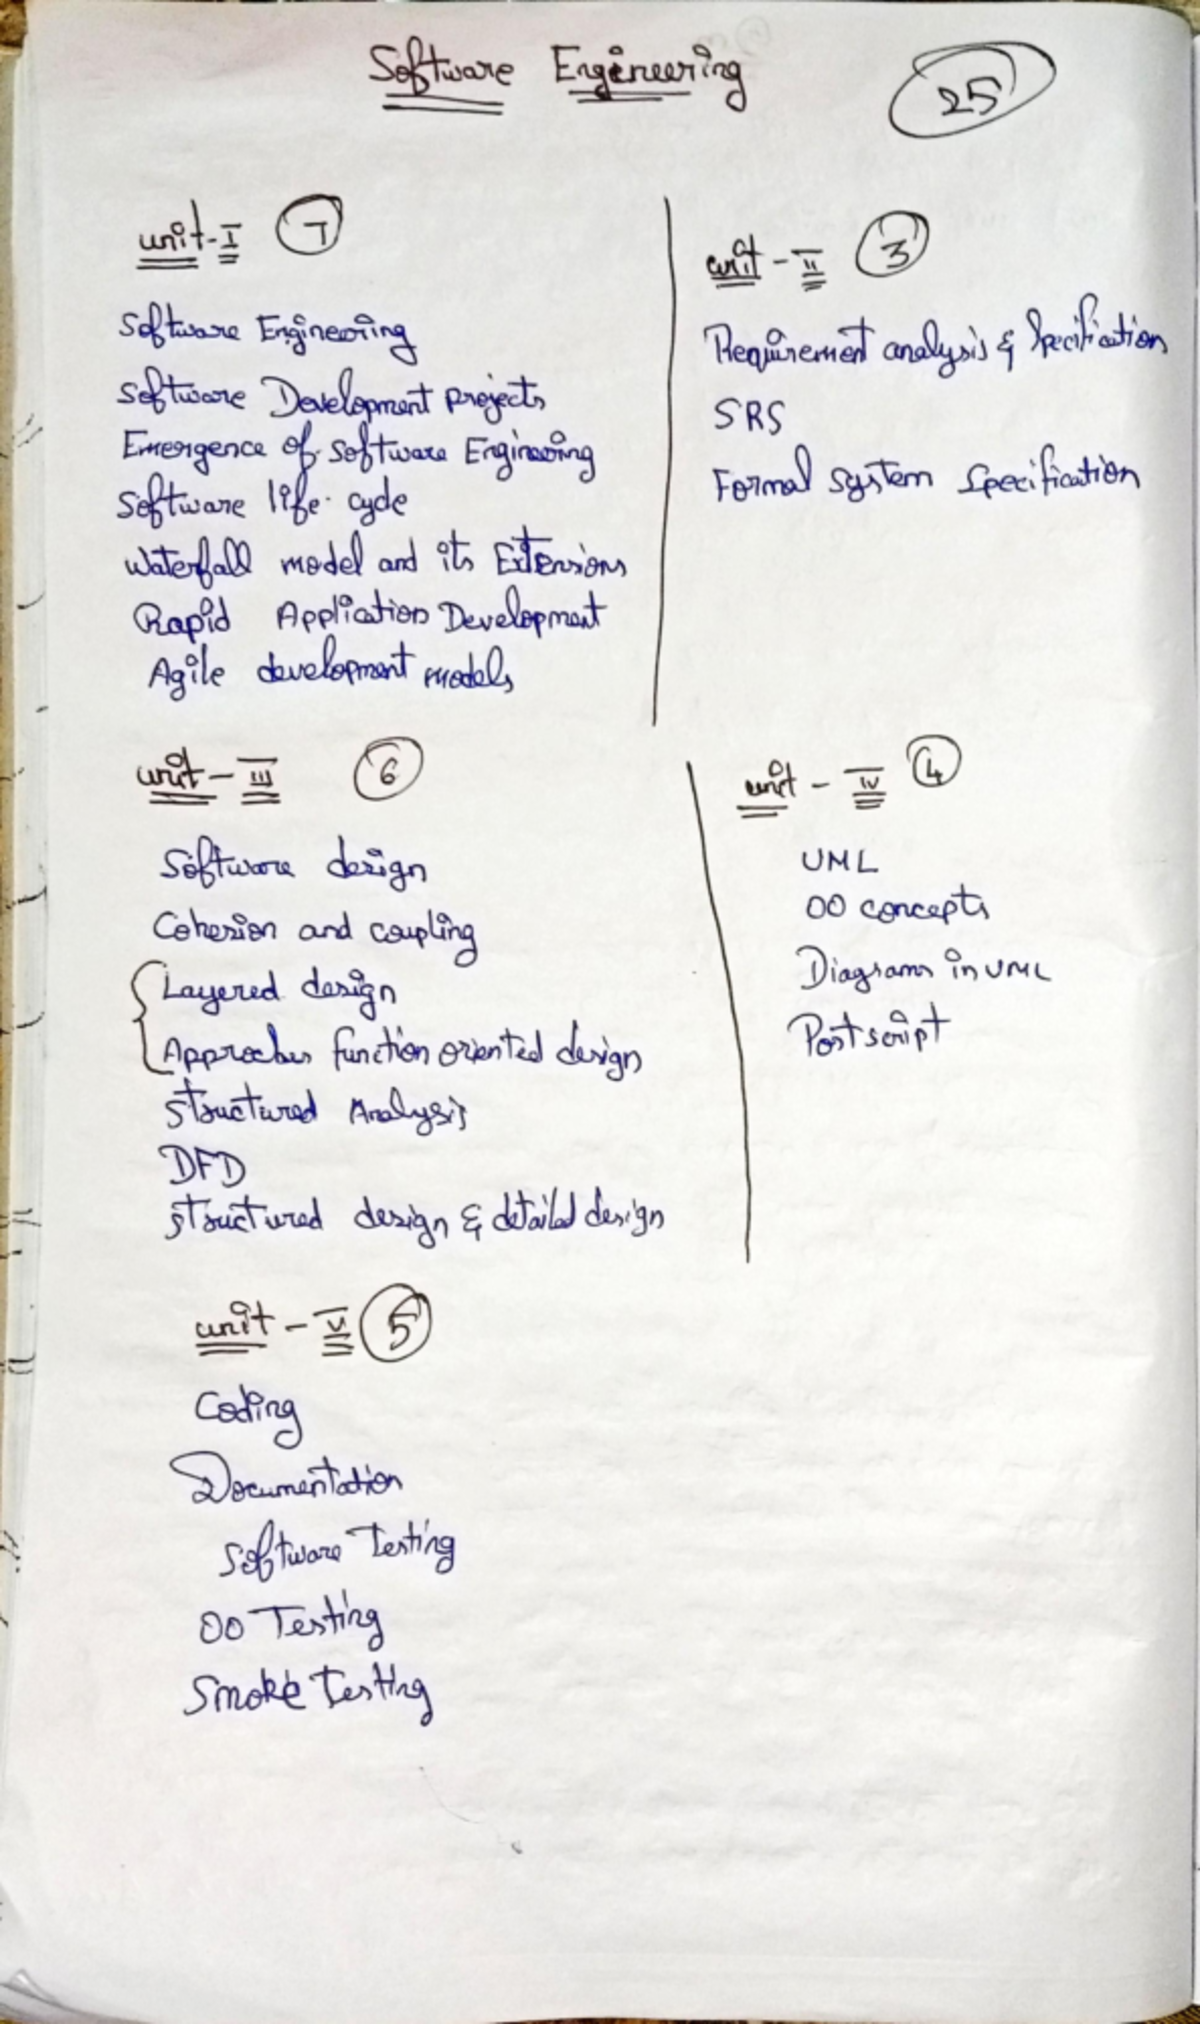 Software Engineering
25
unit-I 7
Software Engineering
Software Development projects
Emergence of software Engineering
Software life cycle
Waterfall model and its Extensions
Rapid Application Development
Agile development models
unit - II 3
Requirement analysis & Specification
SRS
Formal system specification
unit - III 6
Software design
Cohesion and coupling
Layered design
Approches function oriented design
structured Analysis
DFD
structured design & detailed design
unit - IV 4
UML
OO concepts
Diagrams in UML
Postscript
unit - V 5
Coding
Documentation
Software Testing
OO Testing
Smoke Testing